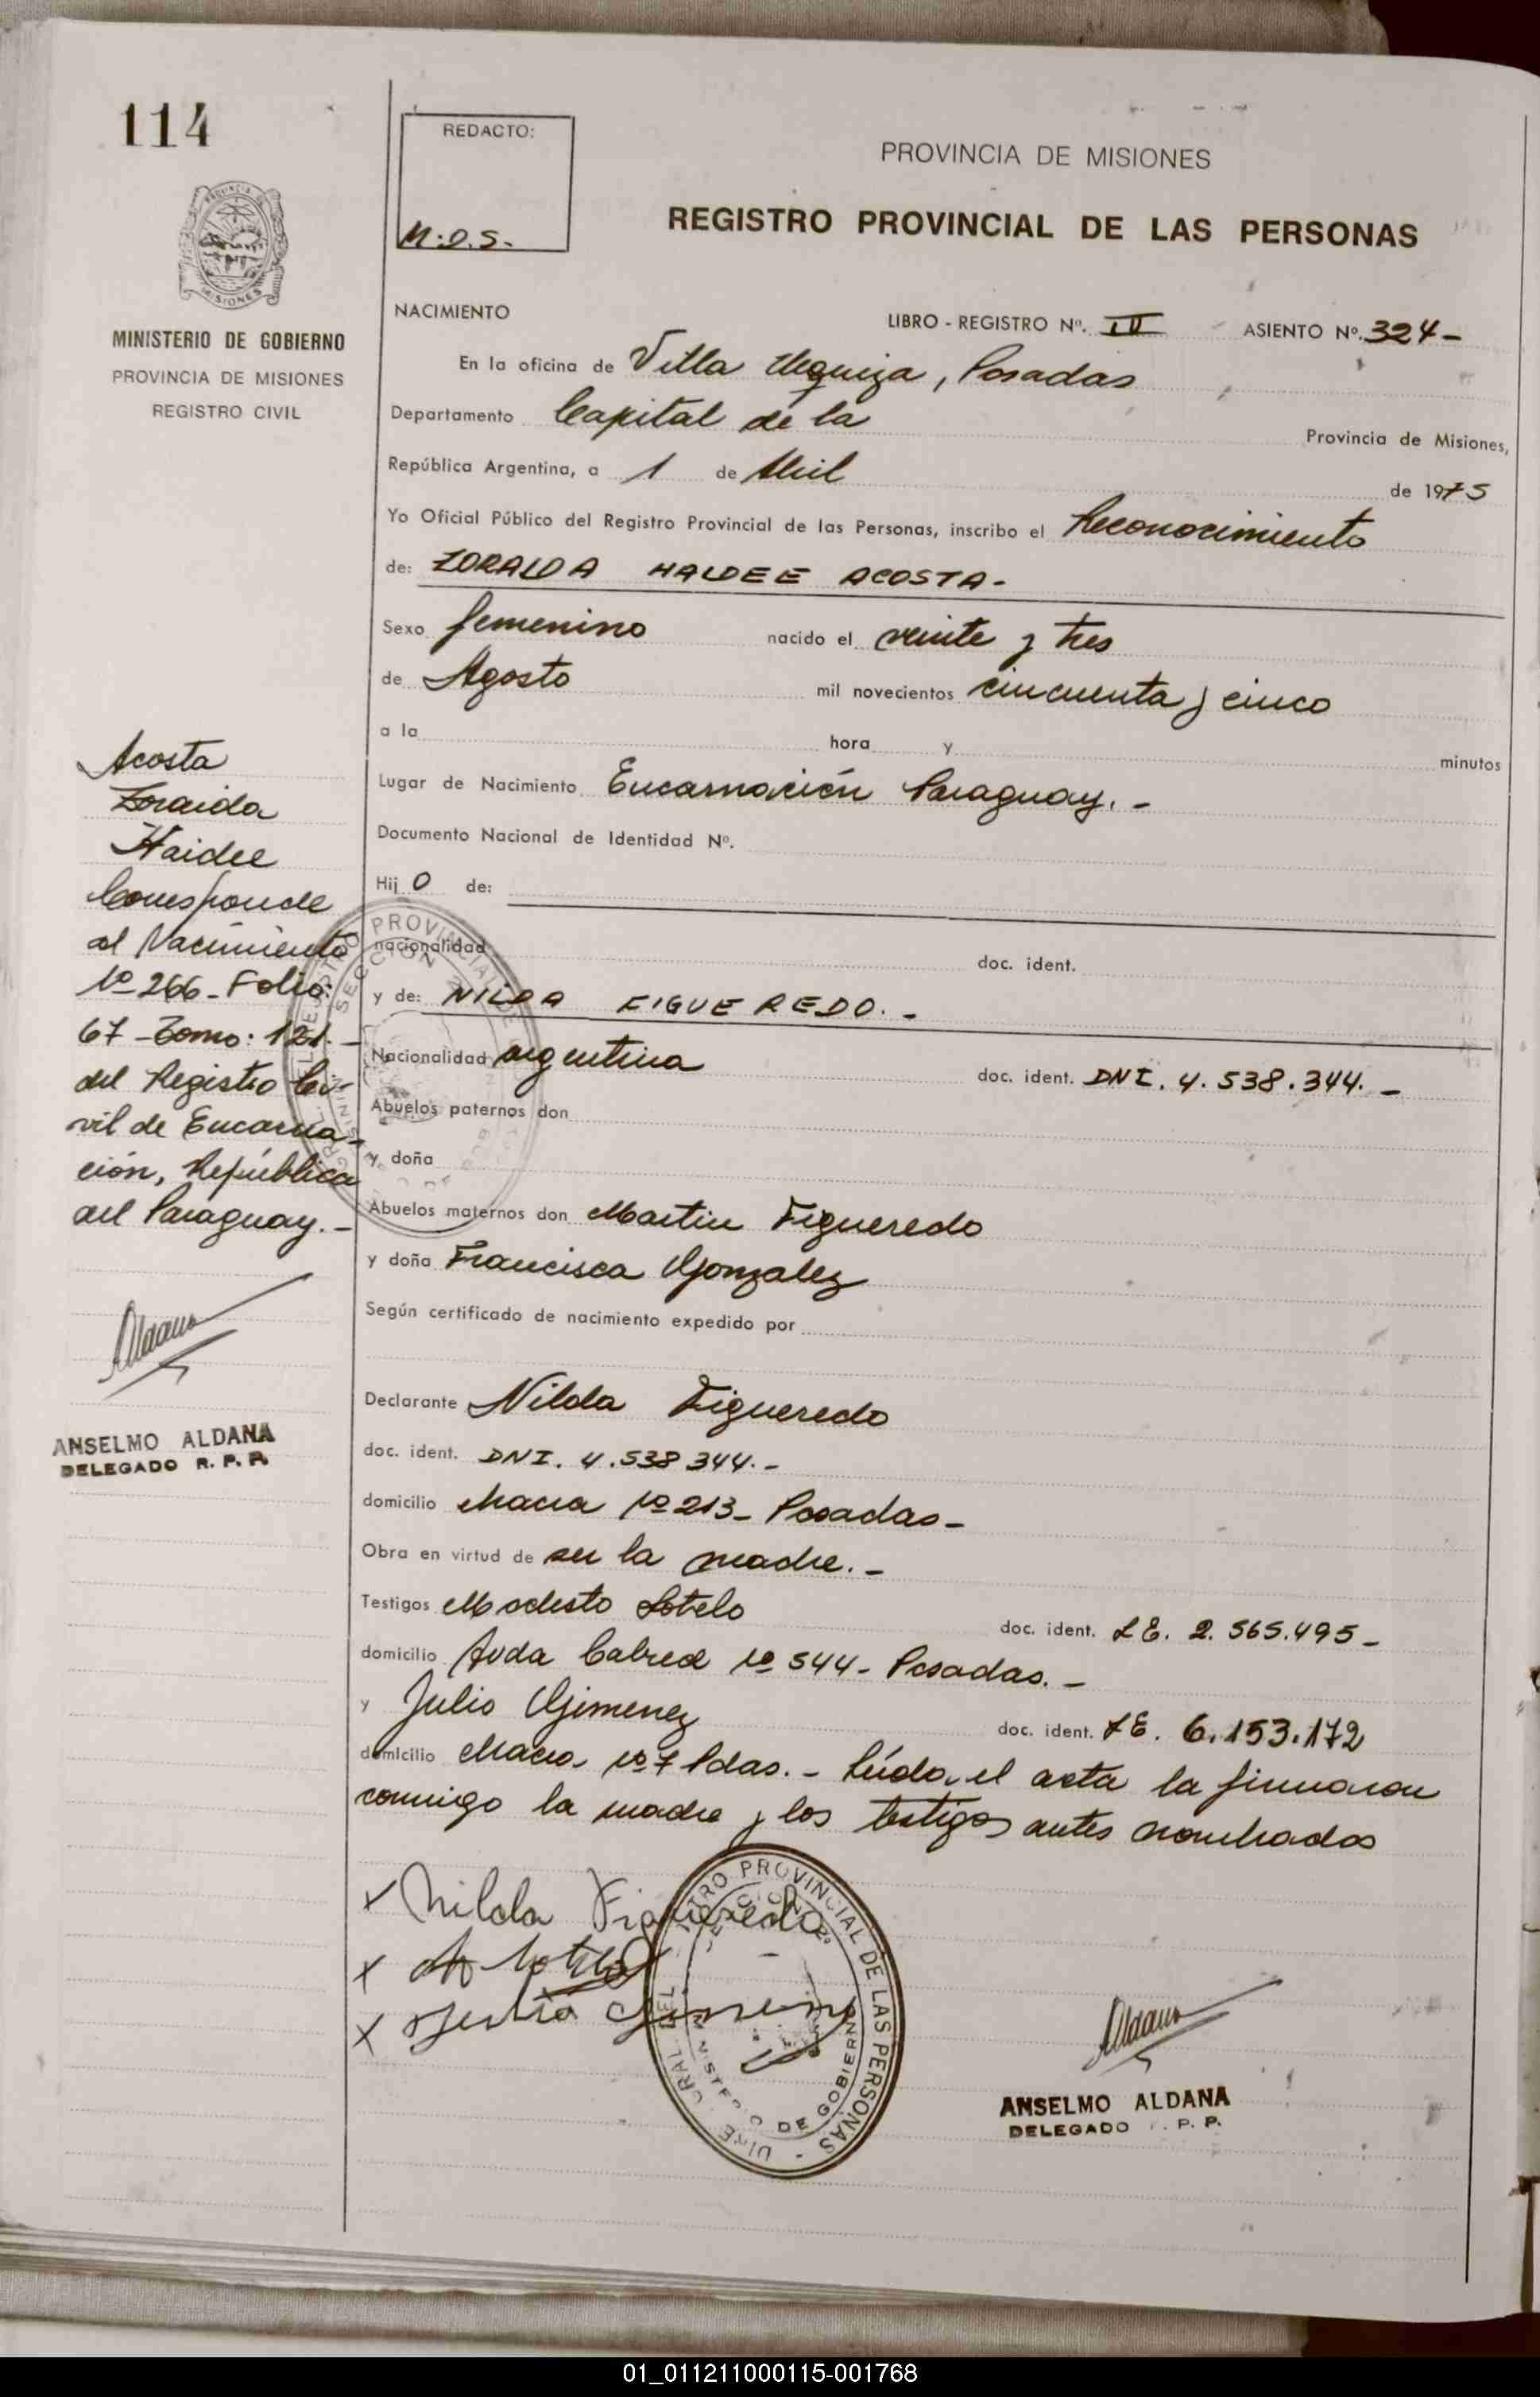 114
REDACTO:
M.O.S.-
PROVINCIA DE MISIONES
REGISTRO PROVINCIAL DE LAS PERSONAS
MINISTERIO DE GOBIERNO
PROVINCIA DE MISIONES
REGISTRO CIVIL
NACIMIENTO
LIBRO - REGISTRO Nº. ASIENTO Nº. 324-
En la oficina de Villa Urquiza, Posadas
Departamento Capital de la Provincia de Misiones,
República Argentina, a 1 de Abril de 1975
Yo Oficial Público del Registro Provincial de las Personas, inscribo el Reconocimiento
de: ZORAIDA HAIDEE ACOSTA-
Sexo femenino nacido el veinte y tres
de Agosto mil novecientos cincuenta y cinco
a la hora y minutos
Lugar de Nacimiento Encarnación Paraguay.-
Documento Nacional de Identidad Nº.
Hij O de:
nacionalidad doc. ident.
y de: NILDA FIGUEREDO.-
Nacionalidad argentina doc. ident. DNI. 4.538.344.-
Abuelos paternos don
y doña
Abuelos maternos don Martin Figueredo
y doña Francisca Gonzalez
Según certificado de nacimiento expedido por
Declarante Nilda Figueredo
doc. ident. DNI. 4.538344.-
domicilio Nº 213- Posadas-
Obra en virtud de ser la madre.-
Testigos Modesto Sotelo doc. ident. LE. 2.565.495-
domicilio Avda Cabred Nº 544- Posadas.-
y Julio Gimenez doc. ident. LE. 6.153.172
domicilio Nº 7 Pdas.- Leída el acta la firmaron
conmigo la madre y los testigos antes nombrados
Acosta
Zoraida
Haidee
Corresponde
al Nacimiento
Nº 266- Folio:
67-Tomo: 121.-
del Registro Ci-
vil de Encarna-
ción, República
del Paraguay.-
Aldana
ANSELMO ALDANA
DELEGADO R. P. P.
x Nilda Figueredo
x M Sotelo
x Julio Gimenez
REGISTRO PROVINCIAL DE LAS PERSONAS
MINISTERIO DE GOBIERNO
Aldana
ANSELMO ALDANA
DELEGADO R. P. P.
01_011211000115-001768